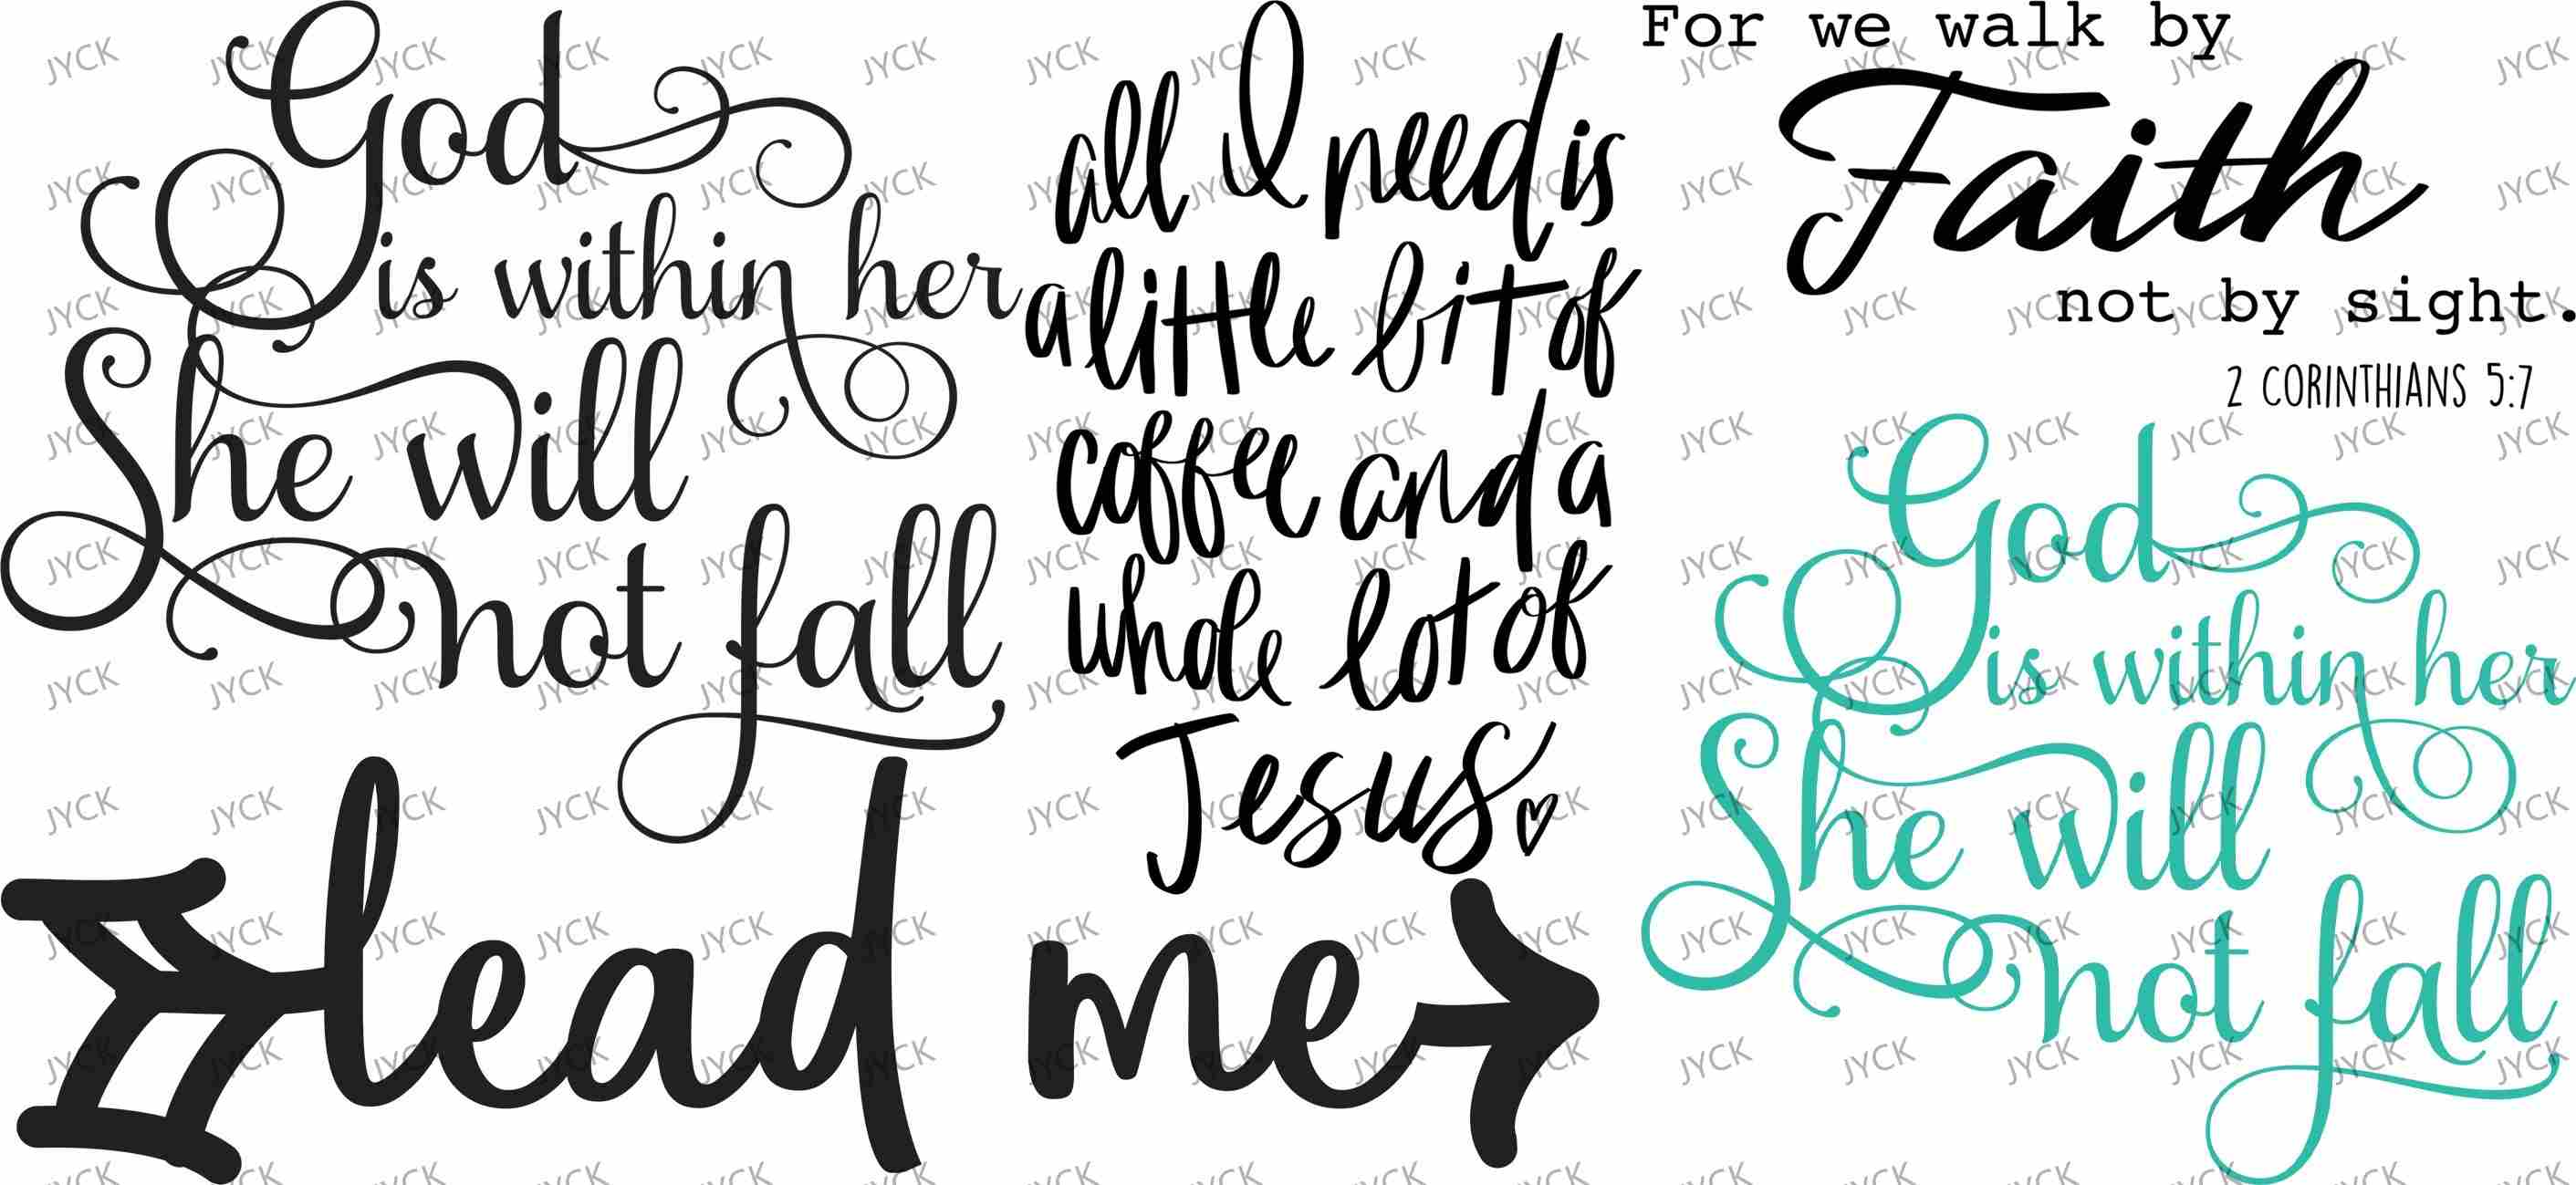 God
is within her
She will
not fall
all I need is
a little bit of
coffee and a
whole lot of
Jesus
For we walk by
Faith
not by sight.
2 CORINTHIANS 5:7
God
is within her
She will
not fall
lead me
JYCK